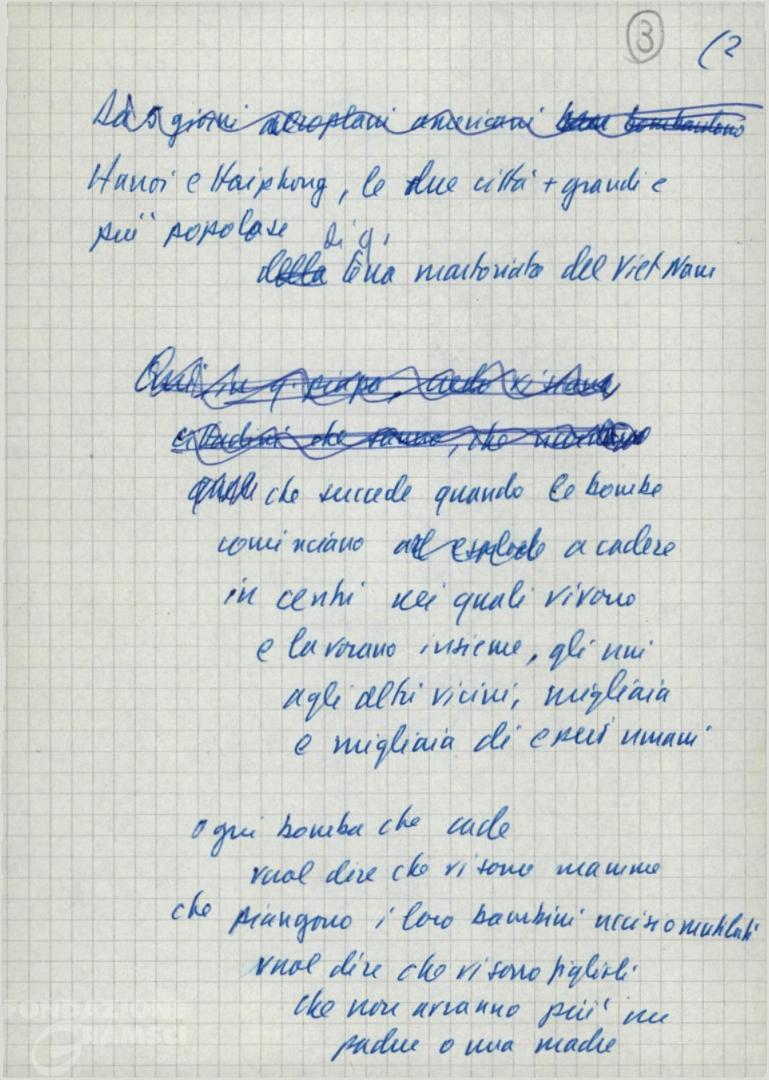 3 (2
Da 5 giorni aeroplani americani bombardano
Hanoi e Haiphong, le due città + grandi e
più popolose di q.
della terra martoriata del Viet Nam
cittadini che sanno, che
che succede quando le bombe
cominciano ad esplode a cadere
in centri nei quali vivono
e lavorano insieme, gli uni
agli altri vicini, migliaia
e migliaia di esseri umani
ogni bomba che cade
vuol dire che vi sono mamme
che piangono i loro bambini uccisi o mutilati
vuol dire che vi sono figlioli
che non avranno più un
padre o una madre
FONDAZIONE
GRAMSCI